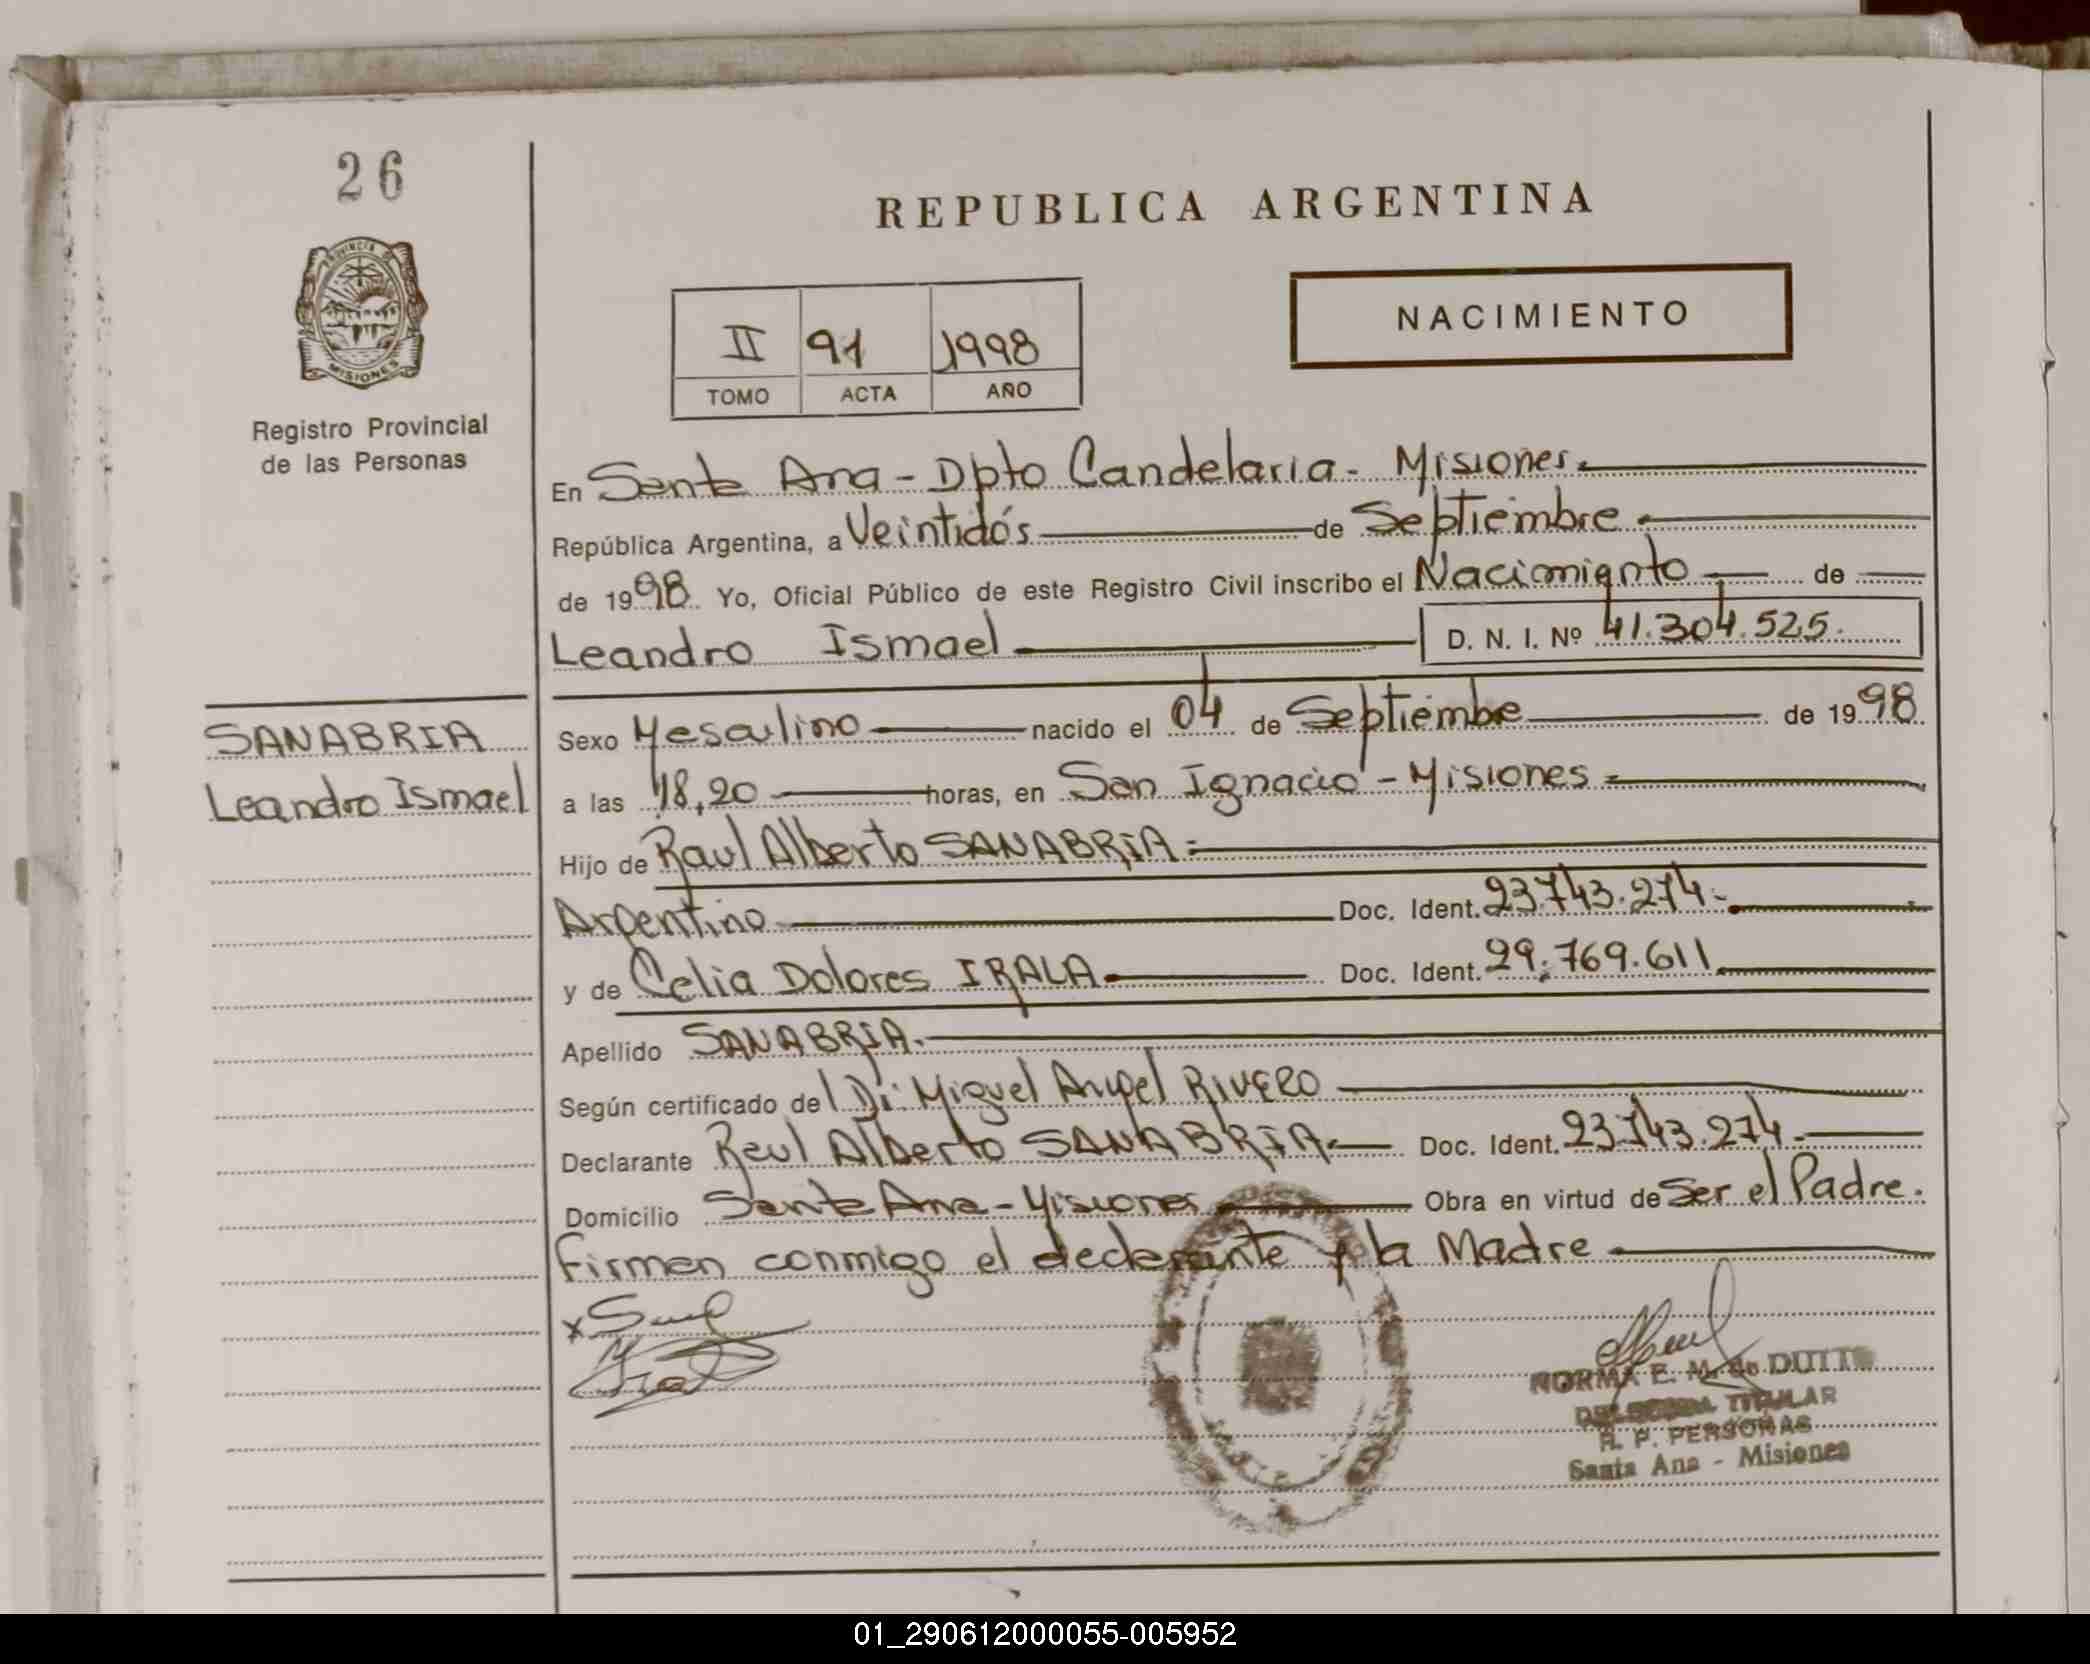 26
REPUBLICA ARGENTINA
PROVINCIA DE
MISIONES
NACIMIENTO
II 91 1998
TOMO ACTA AÑO
Registro Provincial
de las Personas
En Santa Ana - Dpto Candelaria - Misiones.
República Argentina, a Veintidós de Septiembre.
de 1998. Yo, Oficial Público de este Registro Civil inscribo el Nacimiento de
Leandro Ismael D. N. I. Nº 41.304.525.
SANABRIA
Leandro Ismael
Sexo Masculino nacido el 04 de Septiembre de 1998
a las 18,20 horas, en San Ignacio - Misiones =
Hijo de Raul Alberto SANABRIA =
Argentino Doc. Ident. 23.743.274.-
y de Celia Dolores IRALA Doc. Ident. 29.769.611
Apellido SANABRIA.
Según certificado del Dr: Miguel Angel RIVERO
Declarante Raul Alberto SANABRIA.- Doc. Ident. 23.743.274.
Domicilio Santa Ana - Misiones Obra en virtud de Ser el Padre.
Firman conmigo el declarante y la Madre
NORMA E. M. de DUTTO
TITULAR
R. P. PERSONAS
Santa Ana - Misiones
01_290612000055-005952